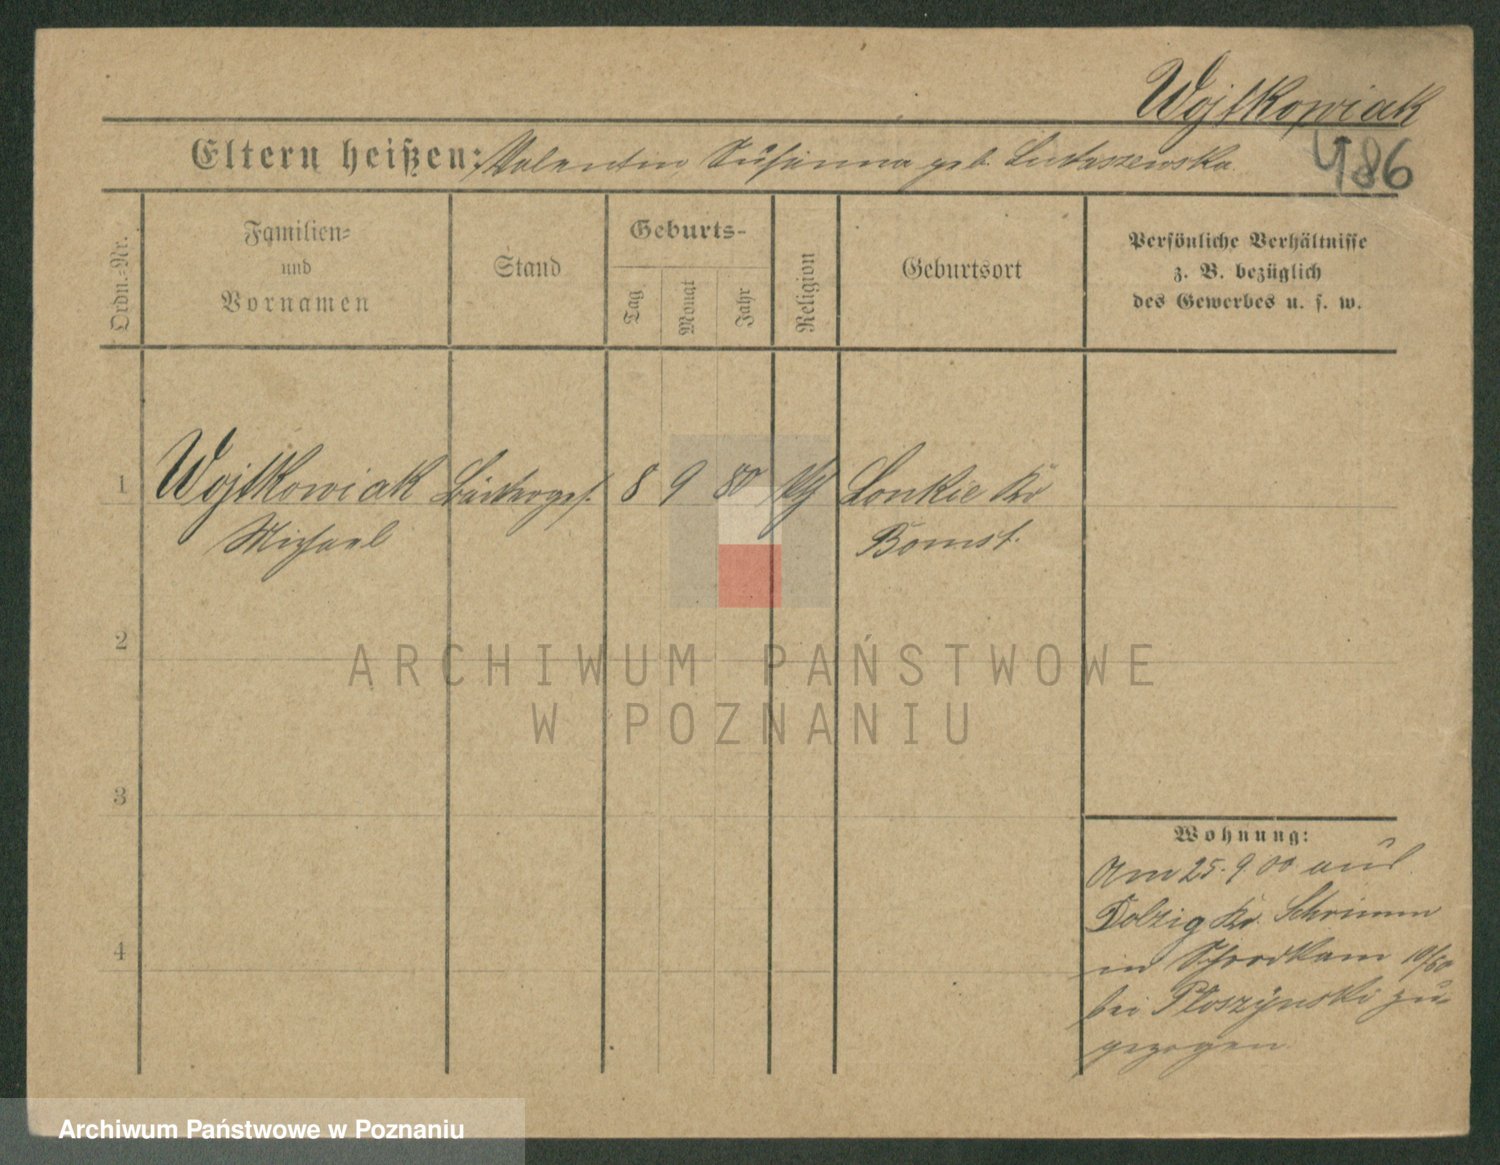 Wojtkowiak
Eltern heißen: Valentin, Susanna geb. Lukaszewska.
486
Ordn.-Nr.
Familien-
und
Vornamen
Stand
Geburts-
Tag
Monat
Jahr
Religion
Geburtsort
Persönliche Verhältnisse
z. B. bezüglich
des Gewerbes u. s. w.
1 Wojtkowiak 8 9 80 Lonkie Kr
Michael Bomst.
2
ARCHIWUM PAŃSTWOWE
W POZNANIU
3
4
Wohnung:
Am 25. 9 00 aus
Dolzig Kr. Schrimm
in
bei Ploszynski zu-
gezogen.
Archiwum Państwowe w Poznaniu